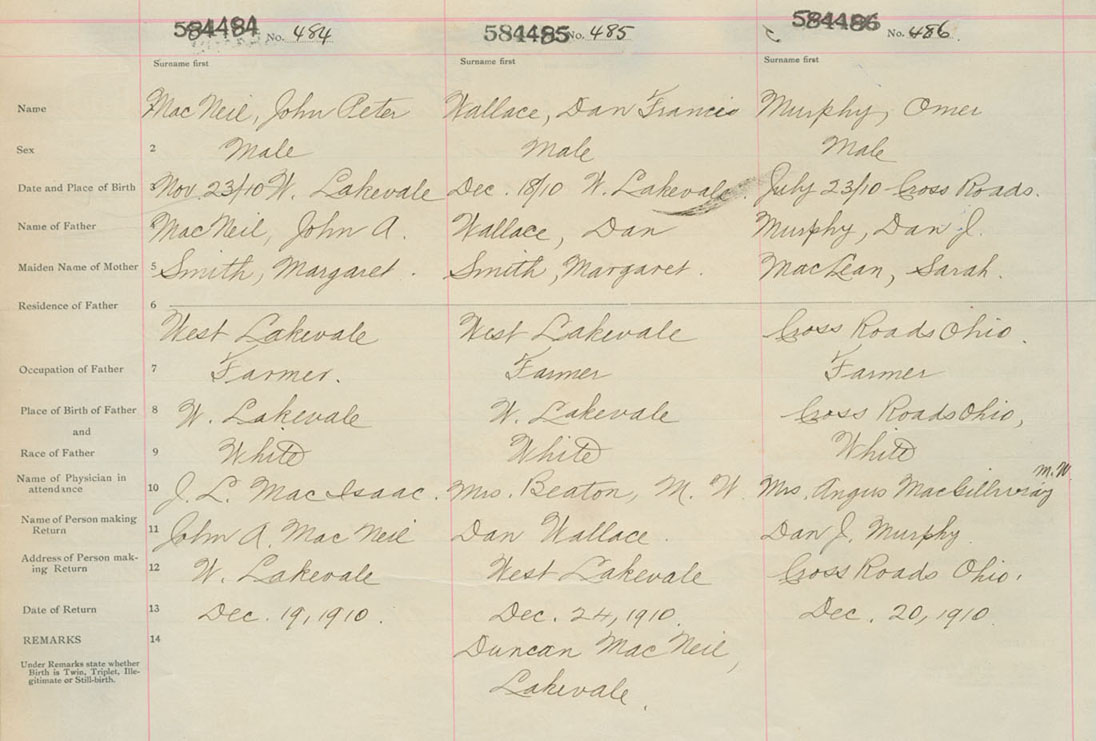 584484 No. 484 584485 No. 485 584486 No. 486.
Surname first Surname first Surname first
Name 1 Mac Neil, John Peter Wallace, Dan Francis Murphy, Omer
Sex 2 Male Male Male
Date and Place of Birth 3 Nov. 23/10 W. Lakevale Dec. 18/10 W. Lakevale. July 23/10 - Cross Roads.
Name of Father 4 MacNeil, John A. Wallace, Dan Murphy, Dan J.
Maiden Name of Mother 5 Smith, Margaret. Smith, Margaret. MacLean, Sarah.
Residence of Father 6
West Lakevale West Lakevale Cross Roads Ohio.
Occupation of Father 7 Farmer. Farmer Farmer
Place of Birth of Father 8 W. Lakevale W. Lakevale Cross Roads Ohio,
and
Race of Father 9 White White White
Name of Physician in
attendance 10 J. L. Mac Isaac. Mrs. Beaton, M. W. Mrs. Angus MacGillivray M.W.
Name of Person making
Return 11 John A. Mac Neil Dan Wallace. Dan J. Murphy.
Address of Person mak-
ing Return 12 W. Lakevale West Lakevale Cross Roads Ohio.
Date of Return 13 Dec. 19, 1910. Dec. 24, 1910. Dec. 20, 1910
REMARKS 14 Duncan Mac Neil,
Under Remarks state whether
Birth is Twin, Triplet, Ille-
gitimate or Still-birth.
Lakevale.